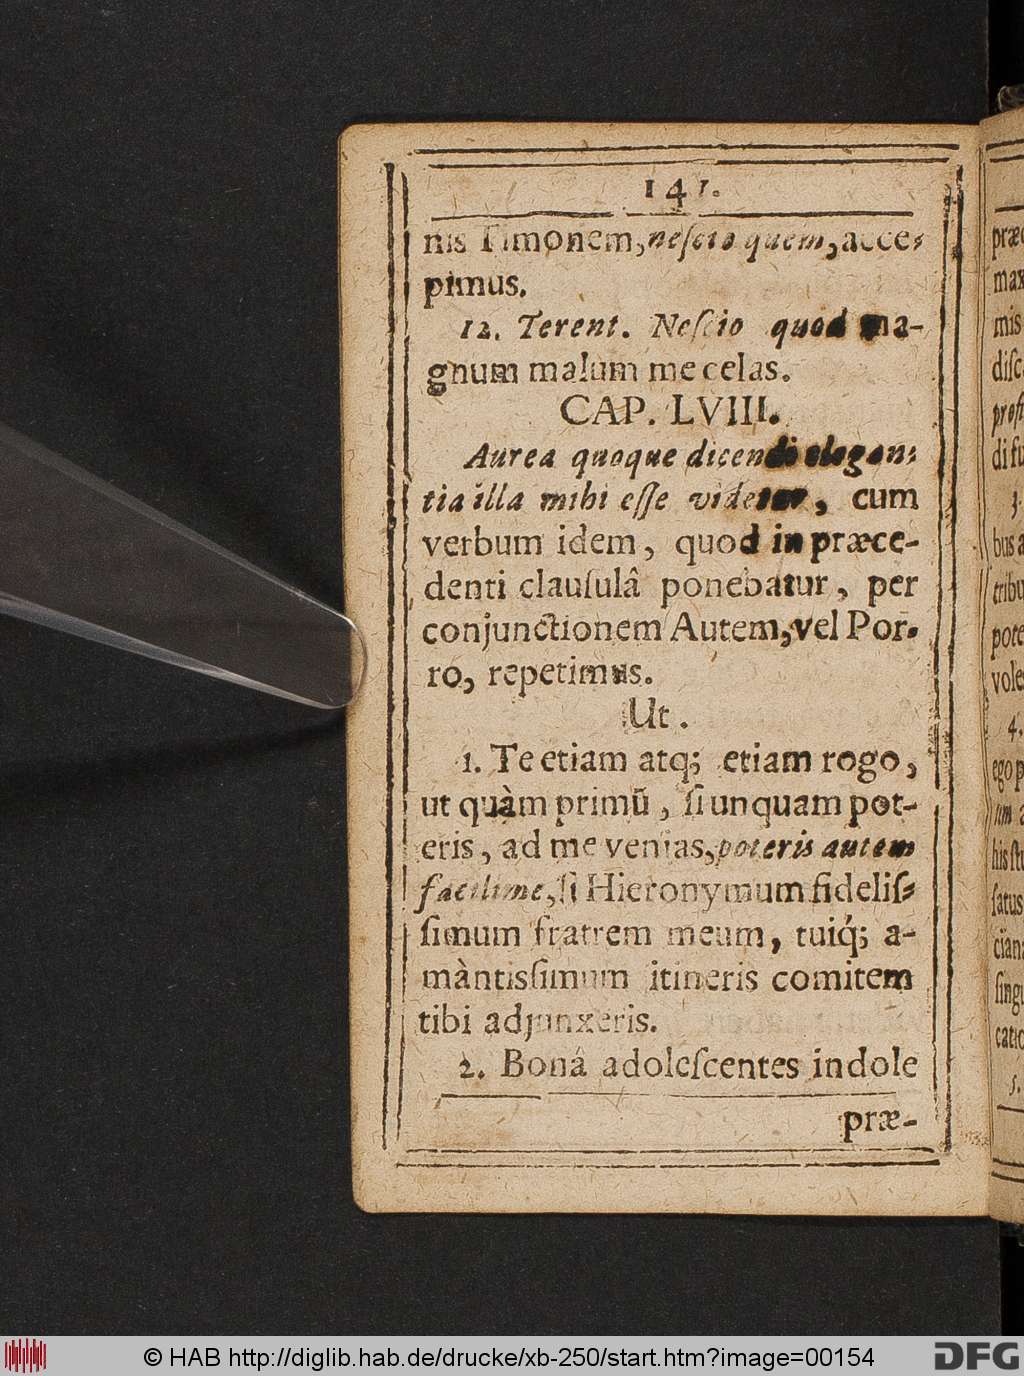 141.
nis Timonem, neſcio quem, acce-
pimus.
12. Terent. Neſcio quod ma-
gnum malum me celas.
CAP. LVIII.
Aurea quoque dicendi elegan-
tia illa mihi eſſe videtur, cum
verbum idem, quod in præce-
denti clauſulâ ponebatur, per
conjunctionem Autem, vel Por-
ro, repetimus.
Ut.
1. Te etiam atq; etiam rogo,
ut quàm primũ, ſi unquam pot-
eris, ad me venias, poteris autem
facilime, ſi Hieronymum fideliſ-
ſimum fratrem meum, tuiq́; a-
màntisſimum itineris comitem
tibi adjunxeris.
2. Bonâ adoleſcentes indole
præ-
præc
max
mis
diſc
profi
di fu
3.
bus a
tribu
pote
voles
4.
ego p
um a
his ſtu
ſatus
ciana
ſingu
catio
5.
© HAB http://diglib.hab.de/drucke/xb-250/start.htm?image=00154
DFG